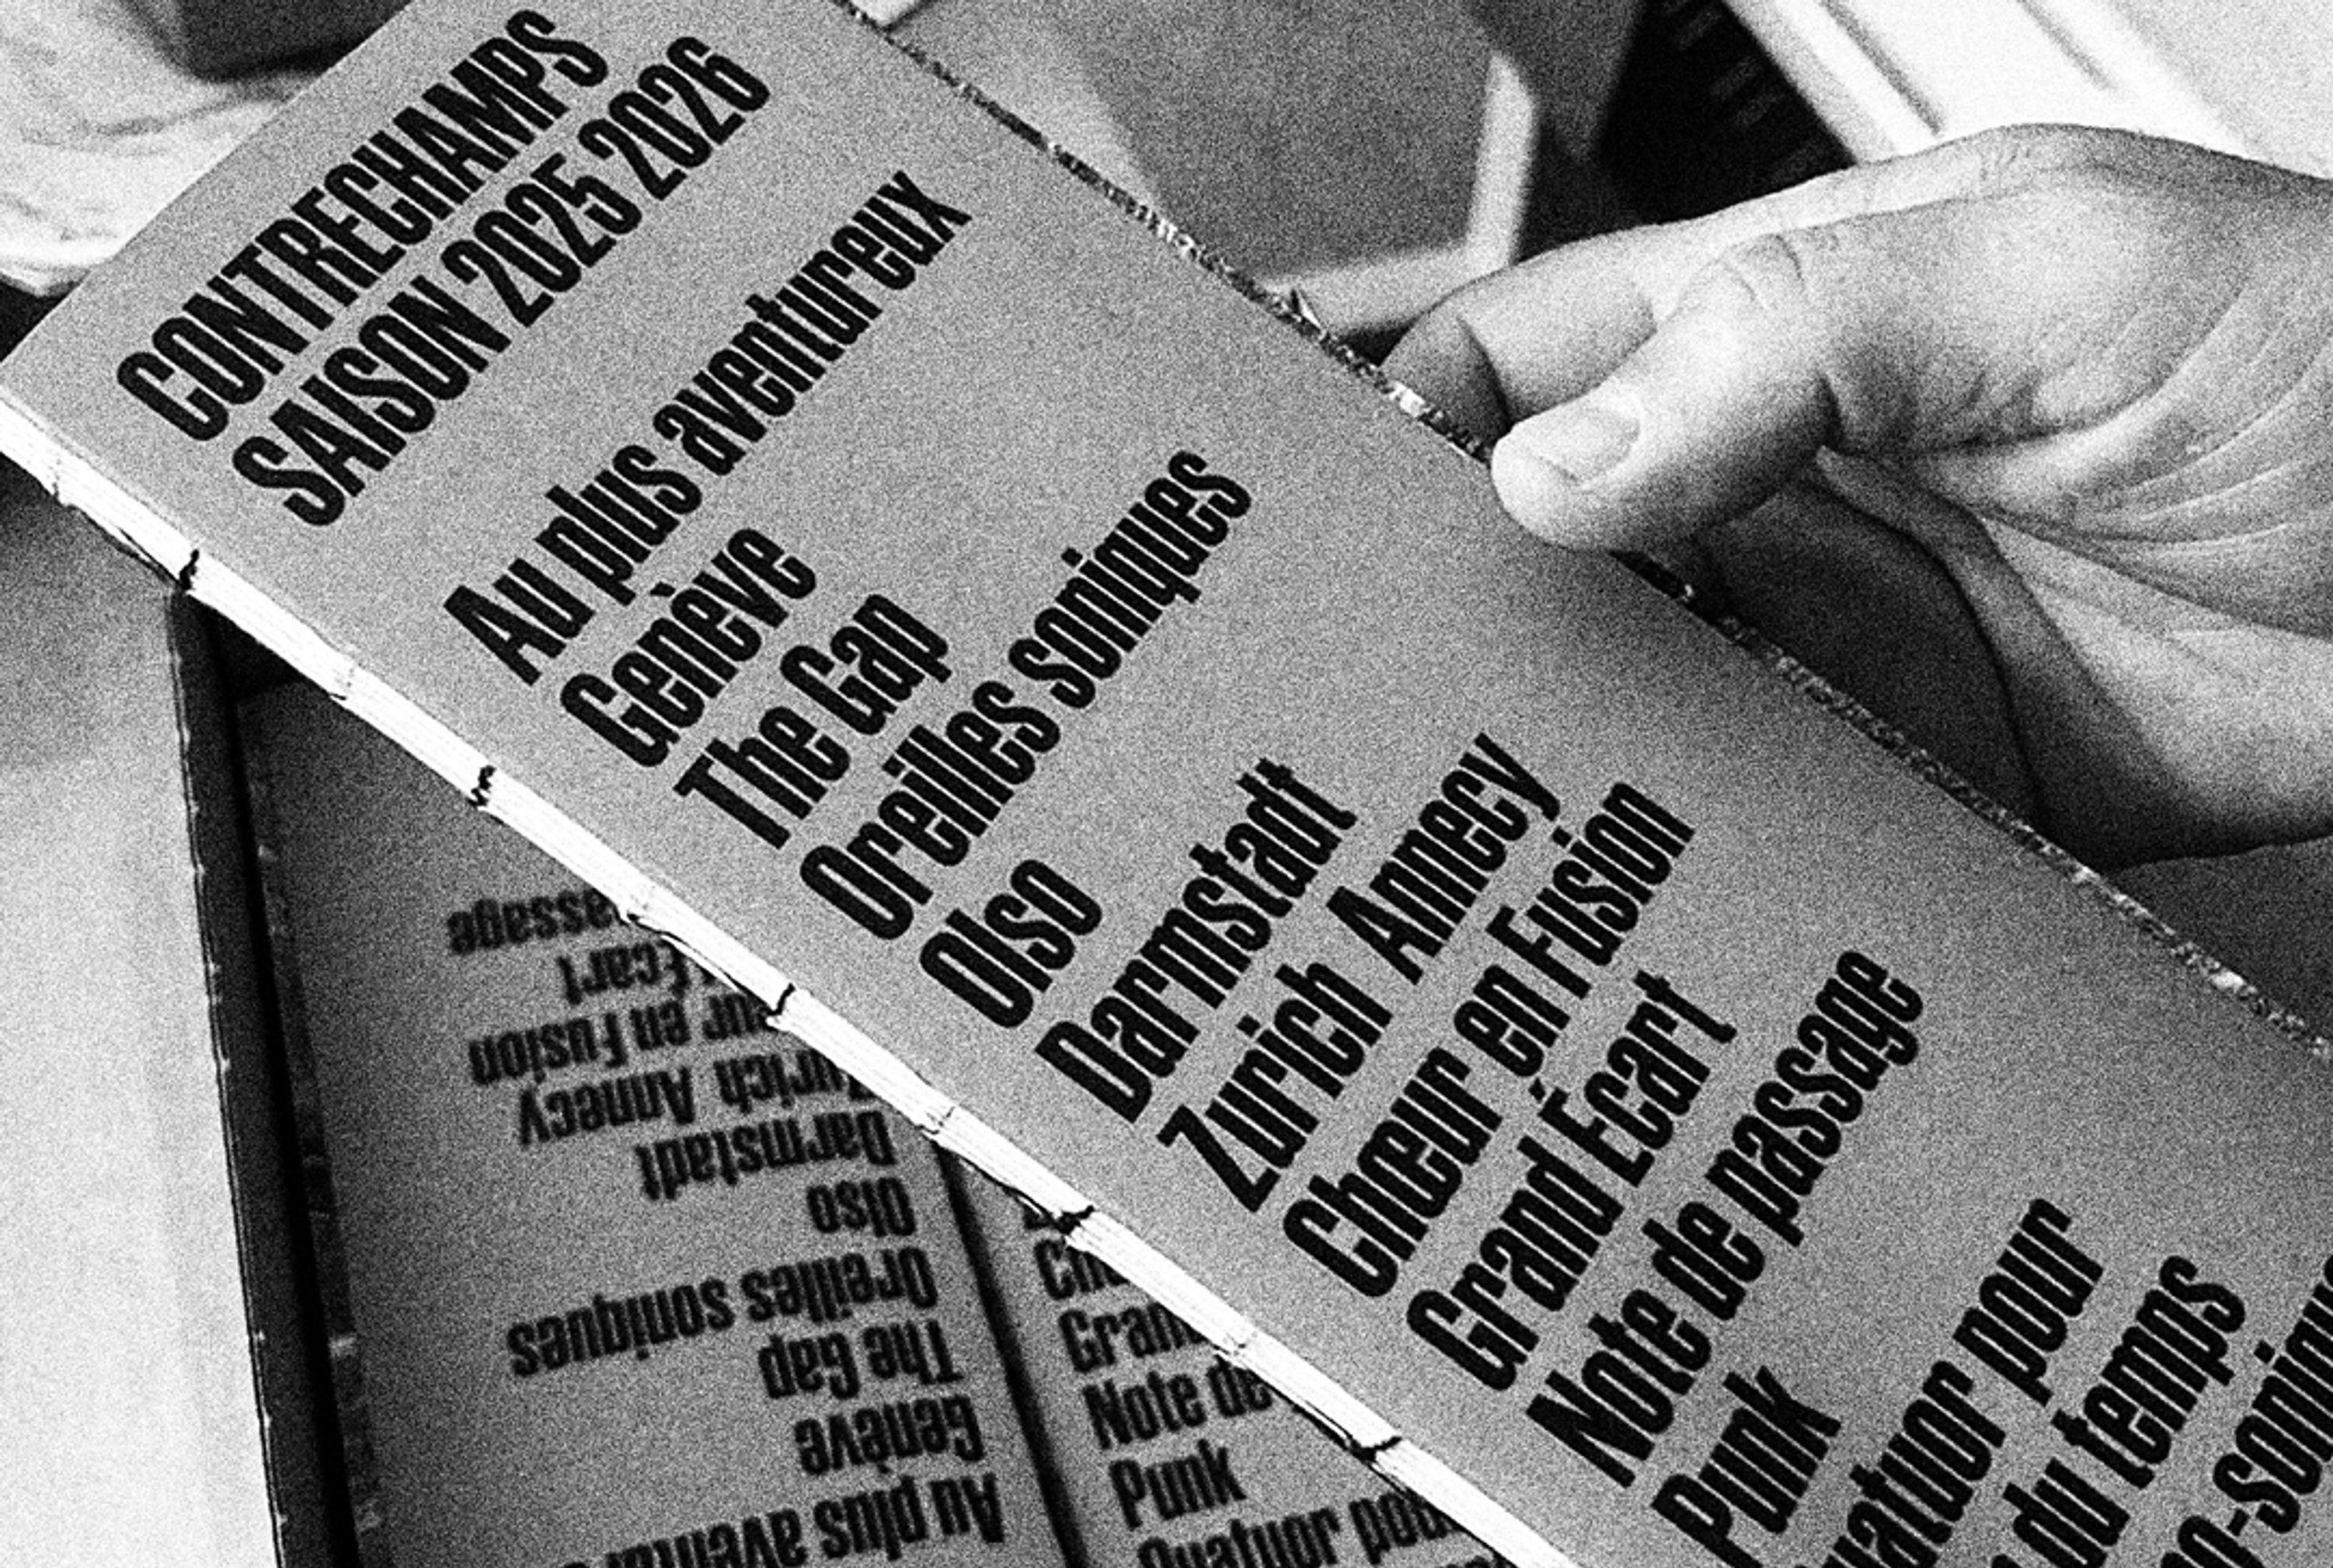 CONTRECHAMPS
SAISON 2025 2026
Au plus aventureux
Genève
The Gap
Oreilles soniques
Olso
Darmstadt
Zurich Annecy
Chœur en Fusion
Grand Écart
Note de passage
Punk
pour
du temps
Écart
en Fusion
Annecy
Darmstadt
Olso
Oreilles soniques
The Gap
Genève
Au plus
Note de
Punk
Quatuor